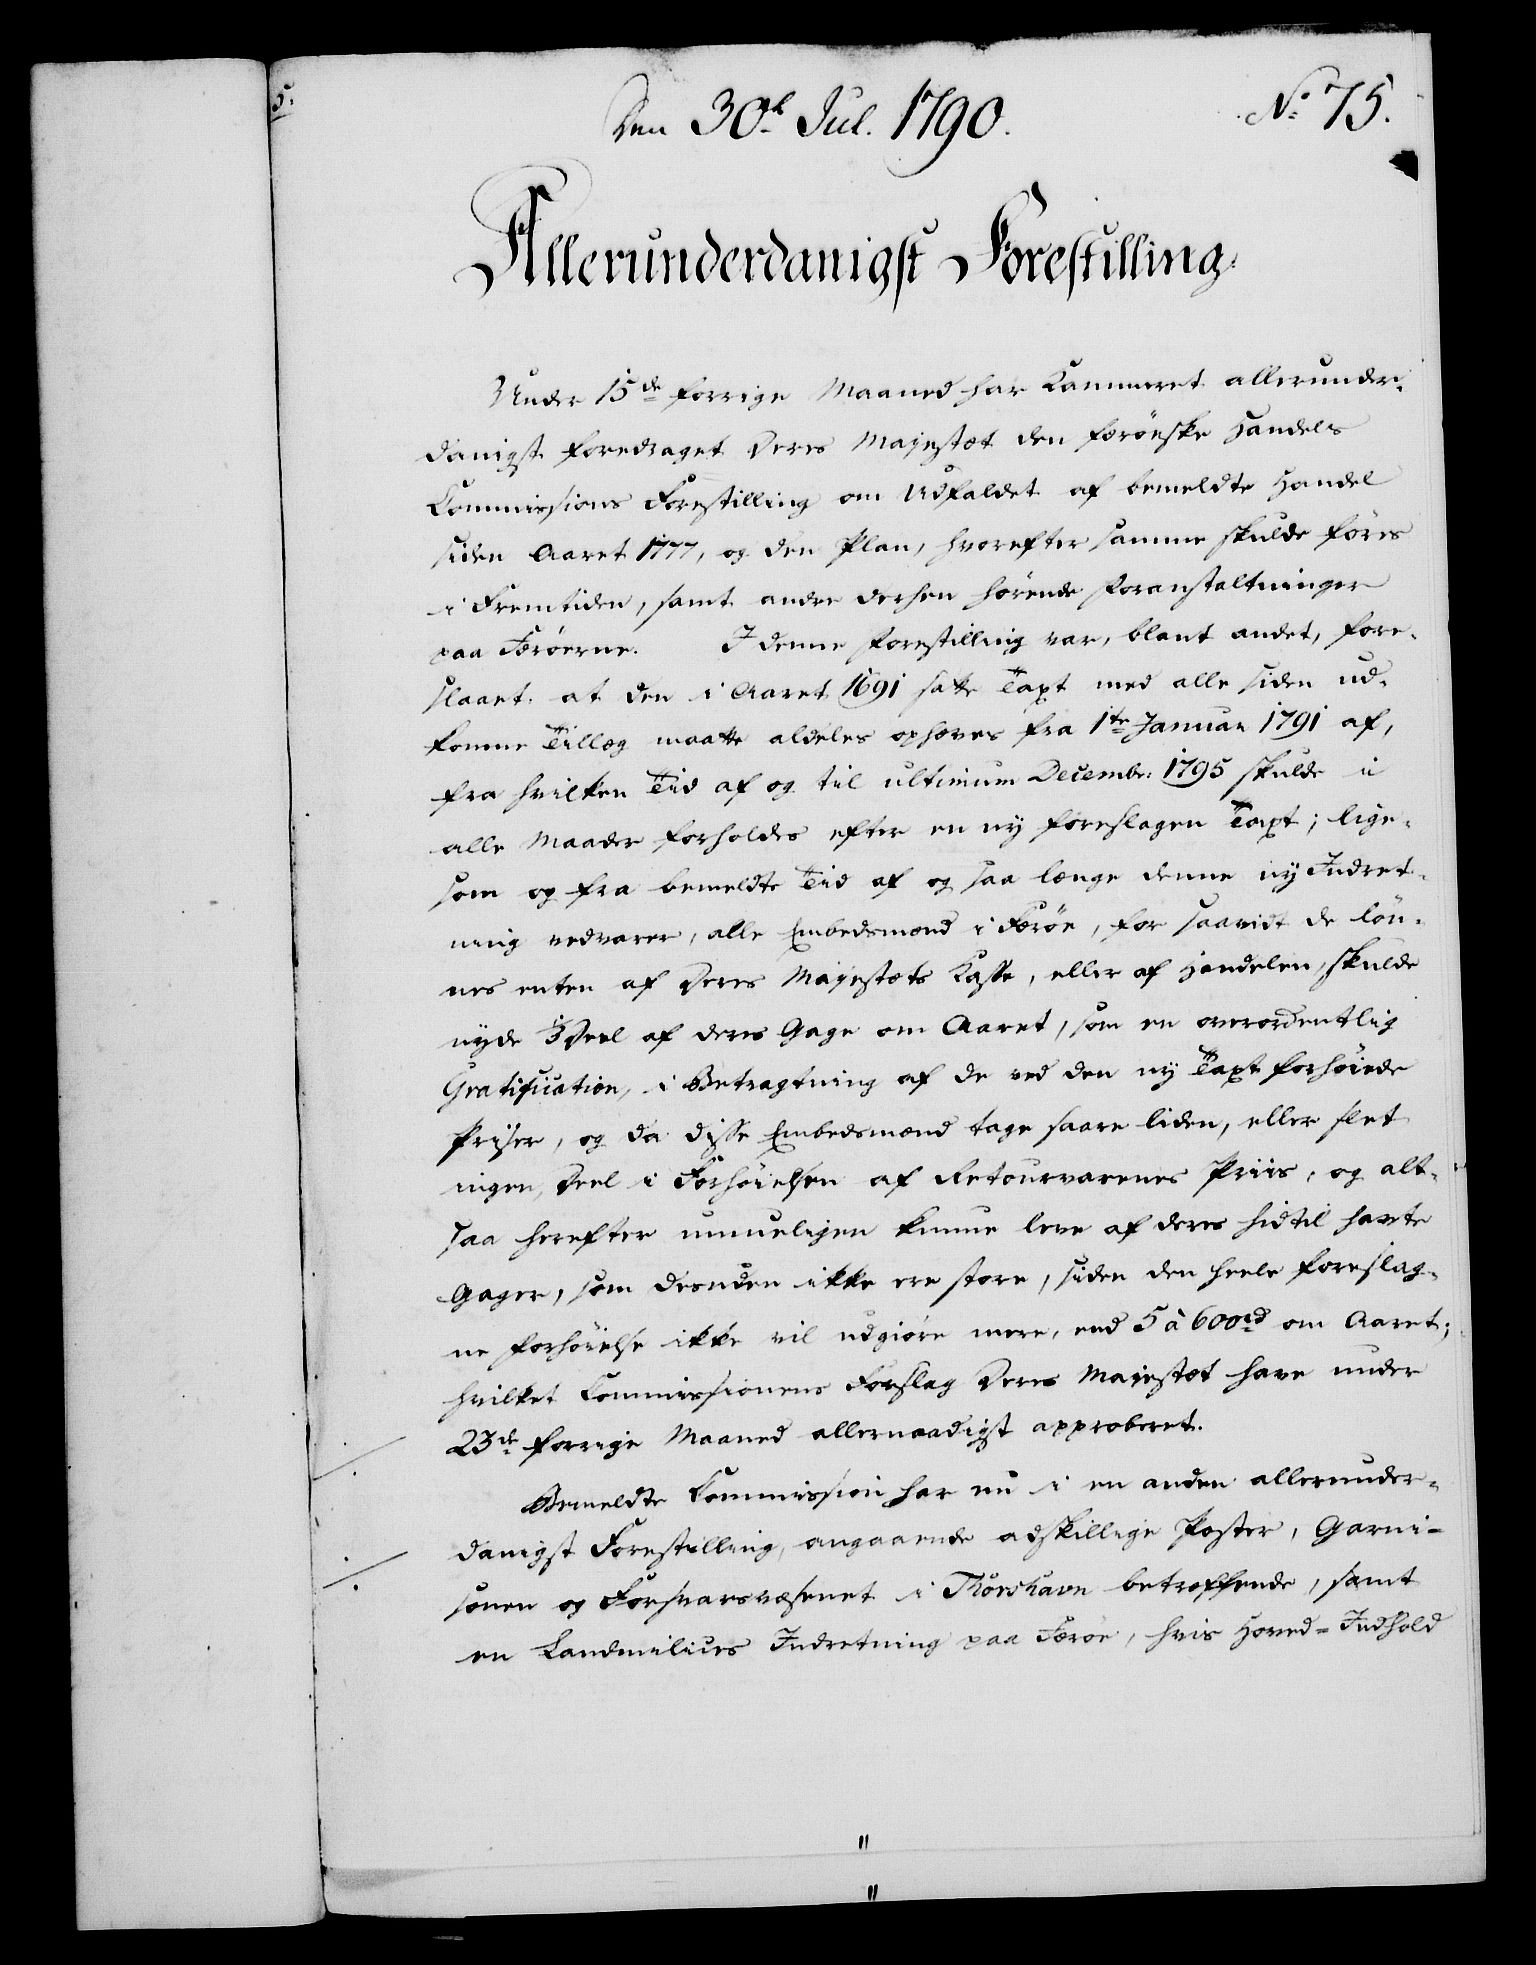 5.
Den 30d Jul. 1790.
No 75.
Allerunderdanigst Forestilling.
Under 15de forrige Maaned har Kammeret allerunder-
danigst foredraget Deres Majestæt den færöeske Handels
Commissions Forestilling om Udfaldet af bemeldte Handel
siden Aaret 1777, og den Plan, hvorefter samme skulde föres
i Fremtiden, samt andre derhen hörende Foranstaltninger
paa Færöerne. I denne Forestilling var, blant andet, fore-
slaaet at den i Aaret 1691 satte Taxt med alle siden ud-
komne Tillæg maatte aldeles ophæves fra 1te Januar 1791 af,
fra hvilken Tid af og til ultimum Decembr: 1795 skulde i
alle Maader forholdes efter en ny foreslagen Taxt; lige-
som og fra bemeldte Tiid af og saa længe denne ny Indret-
ning vedvarer, alle Embedsmænd i Færöe, for saavidt de lön-
nes enten af Deres Majestæts Kasse, eller af Handelen, skulde
nyde Deel af deres Gage om Aaret, som en overordentlig
Gratification, i Betragtning af de ved den ny Taxt forhöiede
Priser, og da disse Embedsmænd tage saare liden, eller slet
ingen, Deel i Forhöielsen af Retourvarenes Priis, og alt-
saa herefter umueligen kunne leve af deres hidtil havte
Gager, som desuden ikke ere store, siden den heele foreslag-
ne Forhöielse ikke vil udgiöre mere, end 5 à 600rd om Aaret;
hvilket Commissionens Forslag Deres Majestæt have under
23de forrige Maaned allernaadigst approberet.
Bemeldte Commission har nu i en anden allerunder-
danigst Forestilling, angaaende adskillige Poster, Garni-
sonen og Forsvarsvæsenet i Thorshavn betreffende, samt
en Landmilices Indretning paa Færöe, hvis Hoved-Indhold